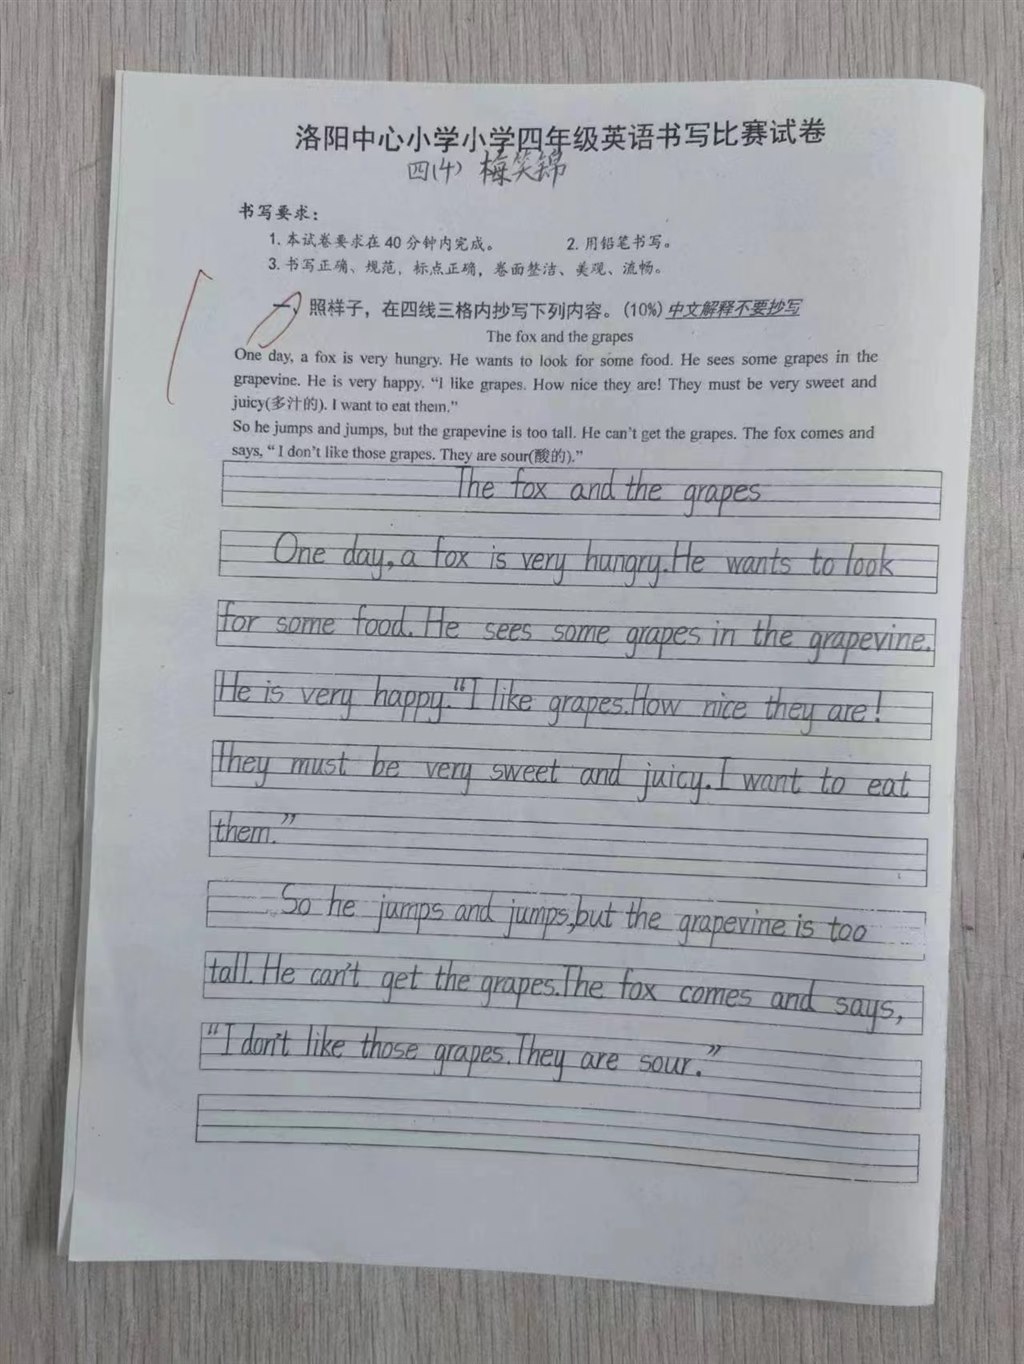 洛阳中心小学小学四年级英语书写比赛试卷
四(4) 梅笑锦
书写要求：
1. 本试卷要求在 40 分钟内完成。 2. 用铅笔书写。
3. 书写正确、规范，标点正确，卷面整洁、美观、流畅。
一、照样子，在四线三格内抄写下列内容。(10%) 中文解释不要抄写
The fox and the grapes
One day, a fox is very hungry. He wants to look for some food. He sees some grapes in the
grapevine. He is very happy. “I like grapes. How nice they are! They must be very sweet and
juicy(多汁的). I want to eat them.”
So he jumps and jumps, but the grapevine is too tall. He can't get the grapes. The fox comes and
says, “ I don't like those grapes. They are sour(酸的).”
The fox and the grapes
One day, a fox is very hungry. He wants to look
for some food. He sees some grapes in the grapevine.
He is very happy. “I like grapes. How nice they are!
They must be very sweet and juicy. I want to eat
them.”
So he jumps and jumps, but the grapevine is too
tall. He can't get the grapes. The fox comes and says,
“I don't like those grapes. They are sour.”